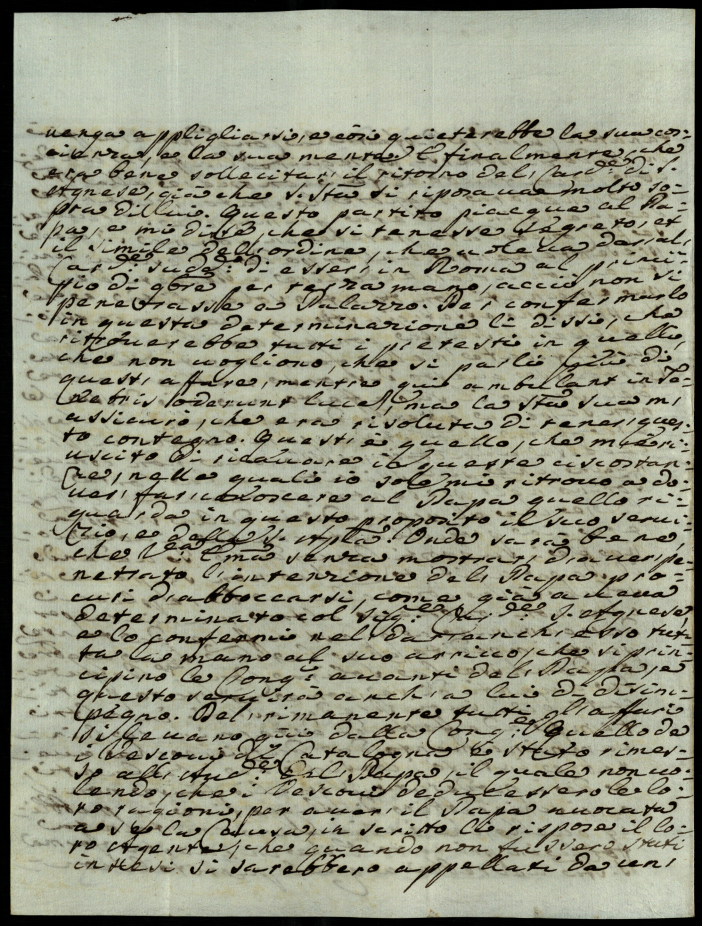 venga appligliarsi, e così quieterebbe la sua cos-
cienza, e la sua mente. E finalmente, che
era bene sollecitar il ritorno del Card.e di S.
Agnese, già che S. Stà si riposava molto so-
pra di lui. Questo partito piacque al Pa-
pa, e mi disse, che si tenesse segreto, et
il simile dell'ordine, che voleva dar al
Card.e di esser in Roma al princi-
pio di 9bre per terza mano, acciò non si
penetrasse a Palazzo. Per confermarlo
in questa determinazione li dissi, che
ritroverebbe tutti i pretesti in quelli,
che non vogliono, che si parli più di
quest'affare, mentre qui ambulant in Te-
netris oderunt lucem, ma la Stà sua mi
assicurò, che era risoluta di tener ques-
to contegno. Questi è quello, che m'è ri-
uscito di ricavare in queste circostan-
ze, nelle quali io solo mi ritrovo a do-
ver far conoscere al Papa quello ri-
guarda in questo proposito il suo servi-
zio, e della S. Onde sarà bene,
che l'Em.a senza mostrar d'aver pe-
netrato l'intenzione del Papa pro-
curi d'abboccarsi, come già aveva
determinato col Sig.r Car. de S. Agnese,
e lo confermi nel dar anch'esso tut-
ta la mano al suo arrivo, che si prin-
cipino le Cong.i avanti del Papa, e
questo servirà anch'a lui di disim-
pegno. Del rimanente tutti gli affari
si levano qui dalla Cong.e Quello de
i Vescovi di Catalogna è stato rimes-
so all'Aud.e Del Papa, il quale non vo-
lendo, che i Vescovi deducessero le lo-
ro ragioni, per aver il Papa avocata
a se la Causa, in scritto li rispose il lo-
ro Agente, che quando non fussero stati
intesi si sarebbero appellati da un'